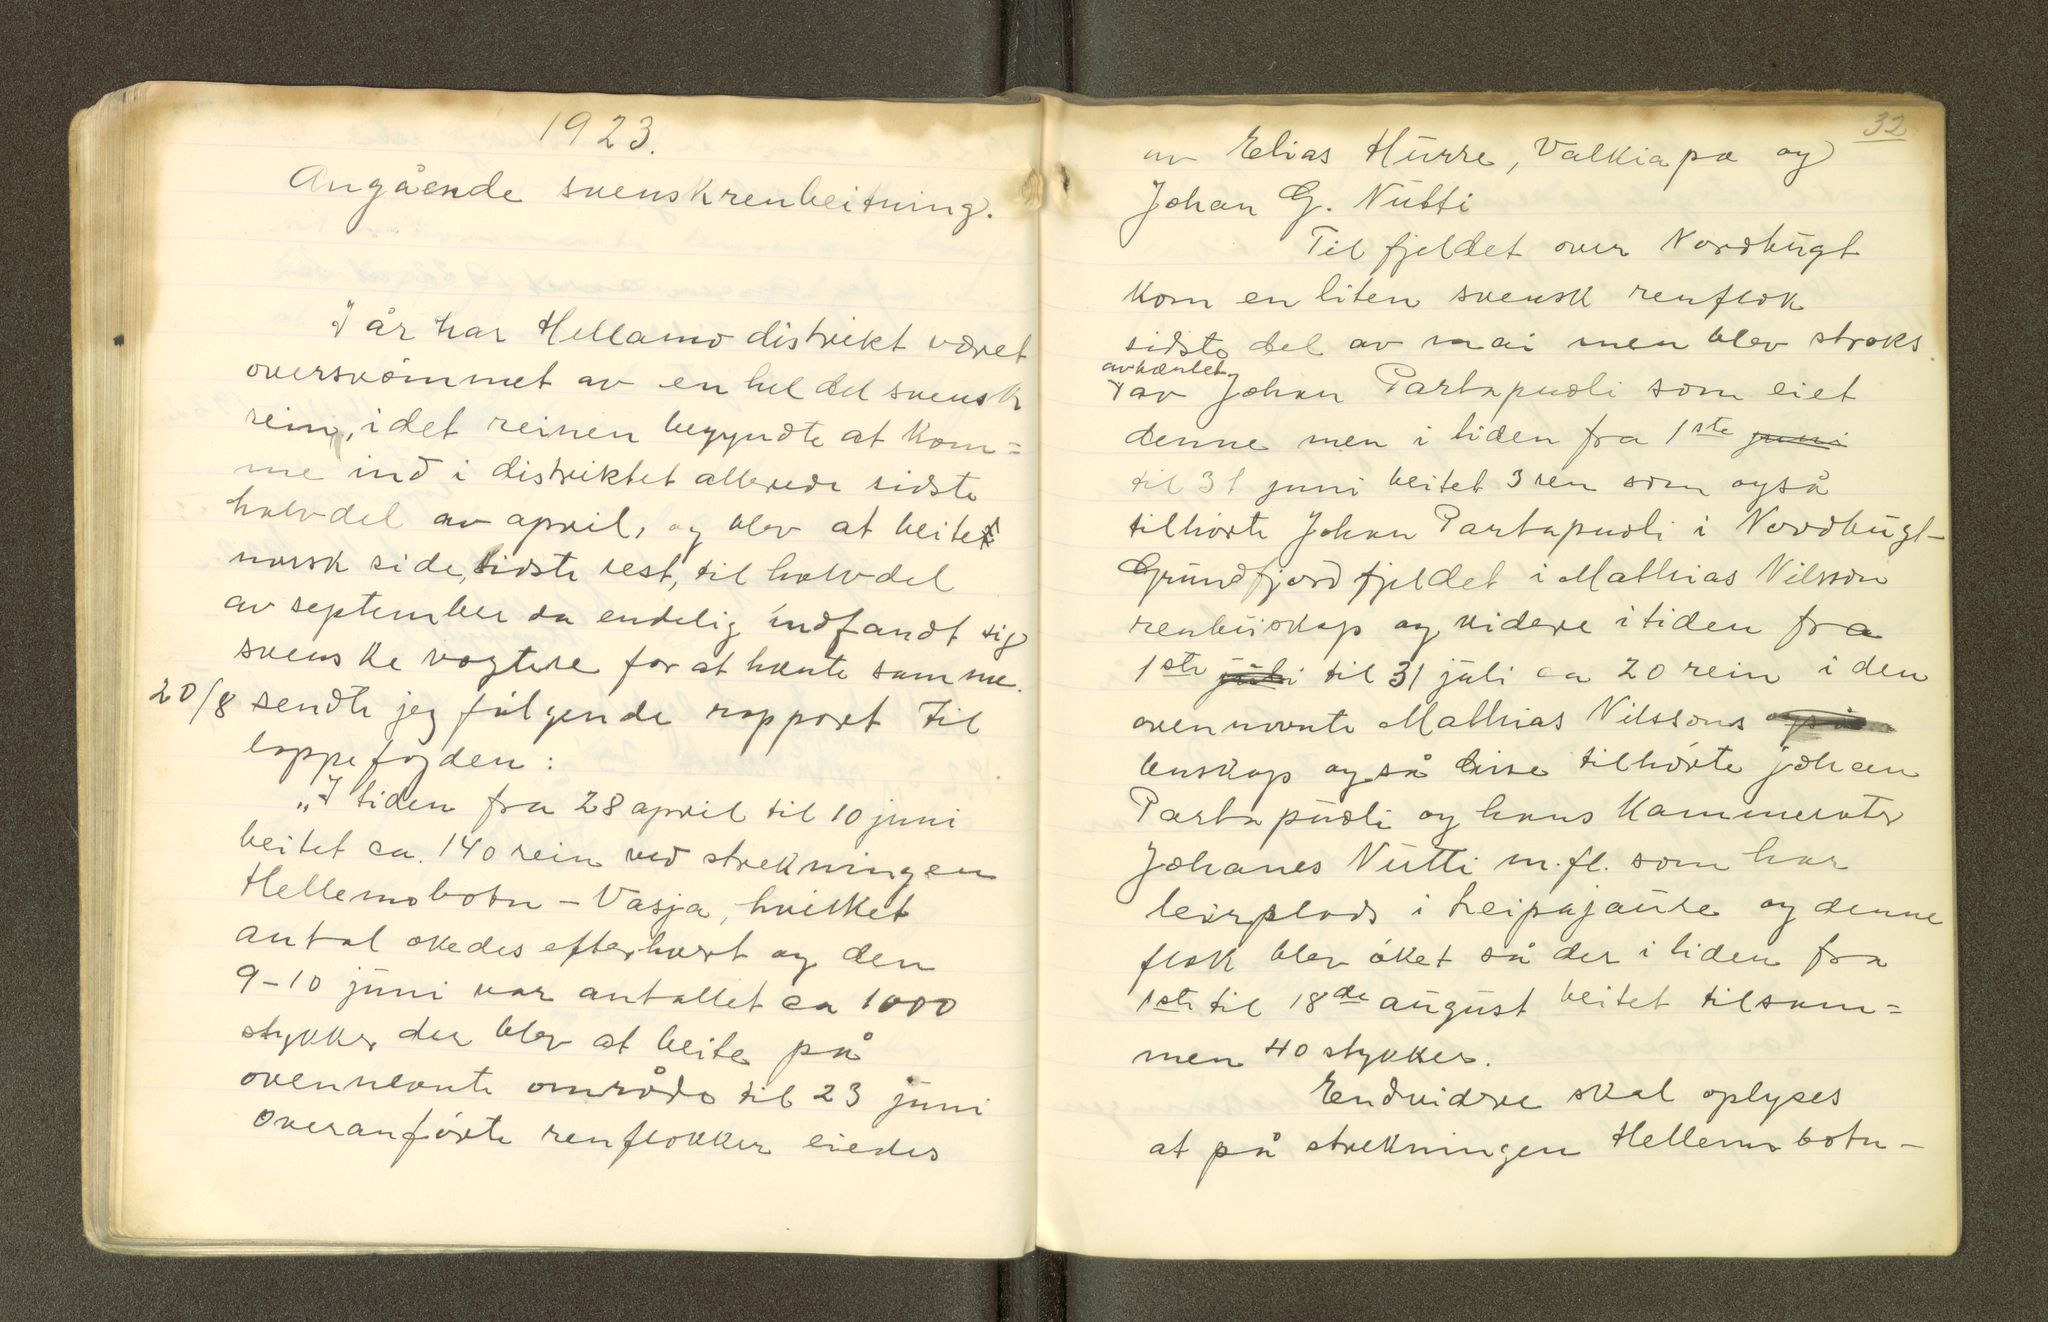 1923.
Angående svenskrenbeitning.
I år har Hellamo distrikt været
oversvømmet av en hel del svensk
rein, i det reinen begyndte at kom=
me ind i distriktet allerede sidste
halvdel av april, og blev at beite
norsk side, sidste rest, til halvdel
av september da endelig indfandt sig
svenske vogtere for at hente samme.
20/8 sendte jeg følgende rapport til
lappefogden:
„I tiden fra 28 april til 10 juni
beitet ca. 140 rein ved strekningen
Hellemobotn – Vasja, hvilket
antal økedes efterhvert og den
9–10 juni var antallet ca 1000
stykker der blev at beite på
ovennevnte område til 23 juni
Overanførte renflokker eiedes
32
av Elias Hurre, Valkiapa og
Johan G. Nutti
Til fjeldet over Nordbugt
kom en liten svensk renflok
sidste del av mai men blev straks
avhentet
av Johan Partapuoli som eiet
denne men i tiden fra 1ste juni
til 31 juni beitet 3 ren som også
tilhørte Johan Partapuoli i Nordbugt–
Grundfjord fjeldet i Mathias Nilsson
renbuskap og videre i tiden fra
1ste juli til 31 juli ca 20 rein i den
ovennevnte Mathias Nilssons også
buskap også disse tilhørte Johan
Partapuoli og hans kammerater
Johanes Nutti m.fl. som har
leirplads i Leipajaure og denne
flok blev øket så der i tiden fra
1ste til 18de august beitet tilsam=
men 40 stykker.
Endvidere skal oplyses
at på strekningen Hellemobotn –